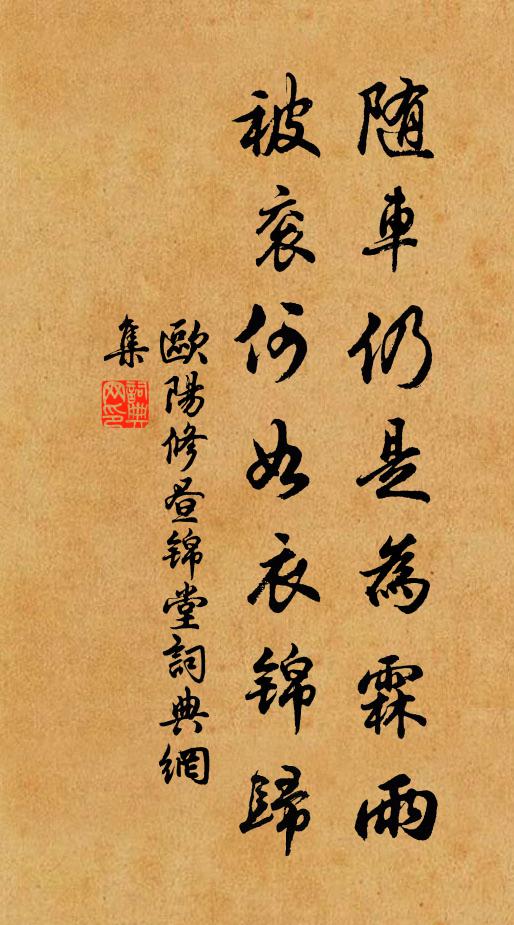 随車仍是為霖雨
被衮何如衣錦歸
歐陽修晝錦堂詞典網
集
詞典網印